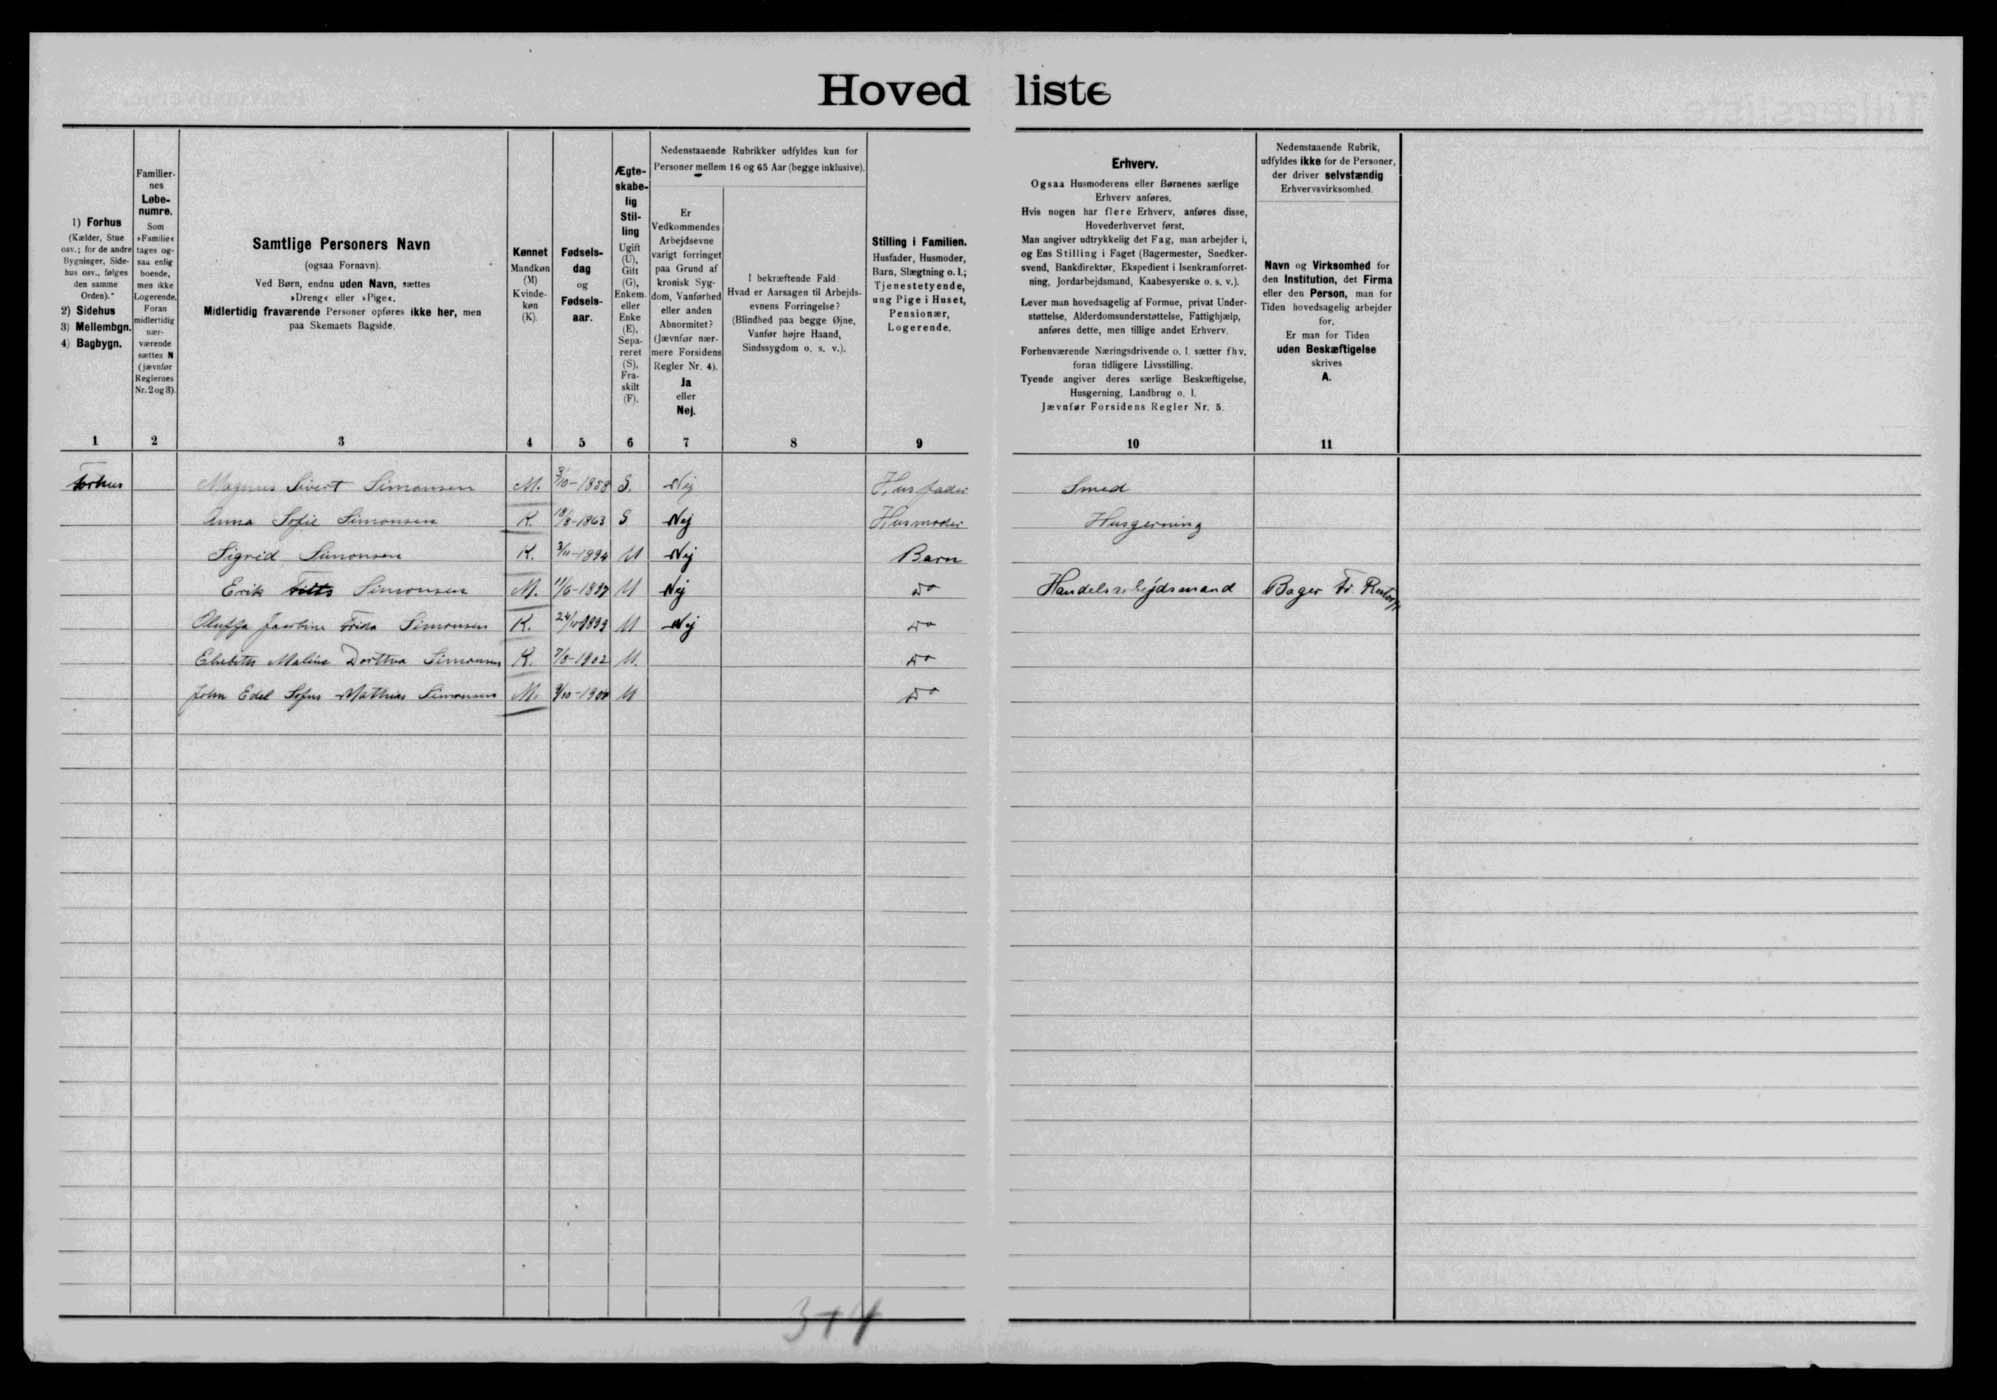 Hovedliste
1) Forhus
(Kælder, Stue
osv.; for de andre
Bygninger, Side-
hus osv., følges
den samme
Orden).*
2) Sidehus
3) Mellembgn.
4) Bagbygn.
Familier-
nes
Løbe-
numre.
Som
»Familie«
tages og-
saa enlig
boende,
men ikke
Logerende.
Foran
midlertidig
nær-
værende
sættes N
(jævnfør
Reglernes
Nr. 2 og 3).
Samtlige Personers Navn
(ogsaa Fornavn).
Ved Børn, endnu uden Navn, sættes
»Dreng« eller »Pige«.
Midlertidig fraværende Personer opføres ikke her, men
paa Skemaets Bagside.
Kønnet
Mandkøn
(M)
Kvinde-
køn
(K).
Fødsels-
dag
og
Fødsels-
aar.
Ægte-
skabe-
lig
Stil-
ling
Ugift
(U),
Gift
(G),
Enkem.
eller
Enke
(E),
Sepa-
reret
(S),
Fra-
skilt
(F).
Nedenstaaende Rubrikker udfyldes kun for
Personer mellem 16 og 65 Aar (begge inklusive).
Er
Vedkommendes
Arbejdsevne
varigt forringet
paa Grund af
kronisk Syg-
dom, Vanførhed
eller anden
Abnormitet?
(Jævnfør nær-
mere Forsidens
Regler Nr. 4).
Ja
eller
Nej.
I bekræftende Fald
Hvad er Aarsagen til Arbejds-
evnens Forringelse?
(Blindhed paa begge Øjne,
Vanfør højre Haand,
Sindssygdom o. s. v.).
Stilling i Familien.
Husfader, Husmoder,
Barn, Slægtning o. l.;
Tjenestetyende,
ung Pige i Huset,
Pensionær,
Logerende.
Erhverv.
Ogsaa Husmoderens eller Børnenes særlige
Erhverv anføres.
Hvis nogen har flere Erhverv, anføres disse,
Hovederhvervet først.
Man angiver udtrykkelig det Fag, man arbejder i,
og Ens Stilling i Faget (Bagermester, Snedker-
svend, Bankdirektør, Ekspedient i Isenkramforret-
ning, Jordarbejdsmand, Kaabesyerske o. s. v.).
Lever man hovedsagelig af Formue, privat Under-
støttelse, Alderdomsunderstøttelse, Fattighjælp,
anføres dette, men tillige andet Erhverv.
Forhenværende Næringsdrivende o. l. sætter fhv.
foran tidligere Livsstilling.
Tyende angiver deres særlige Beskæftigelse,
Husgerning, Landbrug o. l.
Jævnfør Forsidens Regler Nr. 5.
Nedenstaaende Rubrik,
udfyldes ikke for de Personer,
der driver selvstændig
Erhvervsvirksomhed.
Navn og Virksomhed for
den Institution, det Firma
eller den Person, man for
Tiden hovedsagelig arbejder
for.
Er man for Tiden
uden Beskæftigelse
skrives
A.
1 2 3 4 5 6 7 8 9 10 11
Forhus Magnus Sivert Simonsen M. 3/10-1858 S. Nej Husfader Smed
Anna Sofie Simonsen K. 18/8-1863 S Nej Husmoder Husgerning
Sigrid Simonsen K. 2/11-1894 U Nej Barn
Erik Simonsen M. 11/6-1897 U Nej do Handelsarbejdsmand Bager Fr.
Jacobine Frida Simonsen K. 1899 U Nej do
Maline Dorthea Simonsen K. 7/8-1902 U. do
John Edel Sofus Mathias Simonsen M. U do
3+4